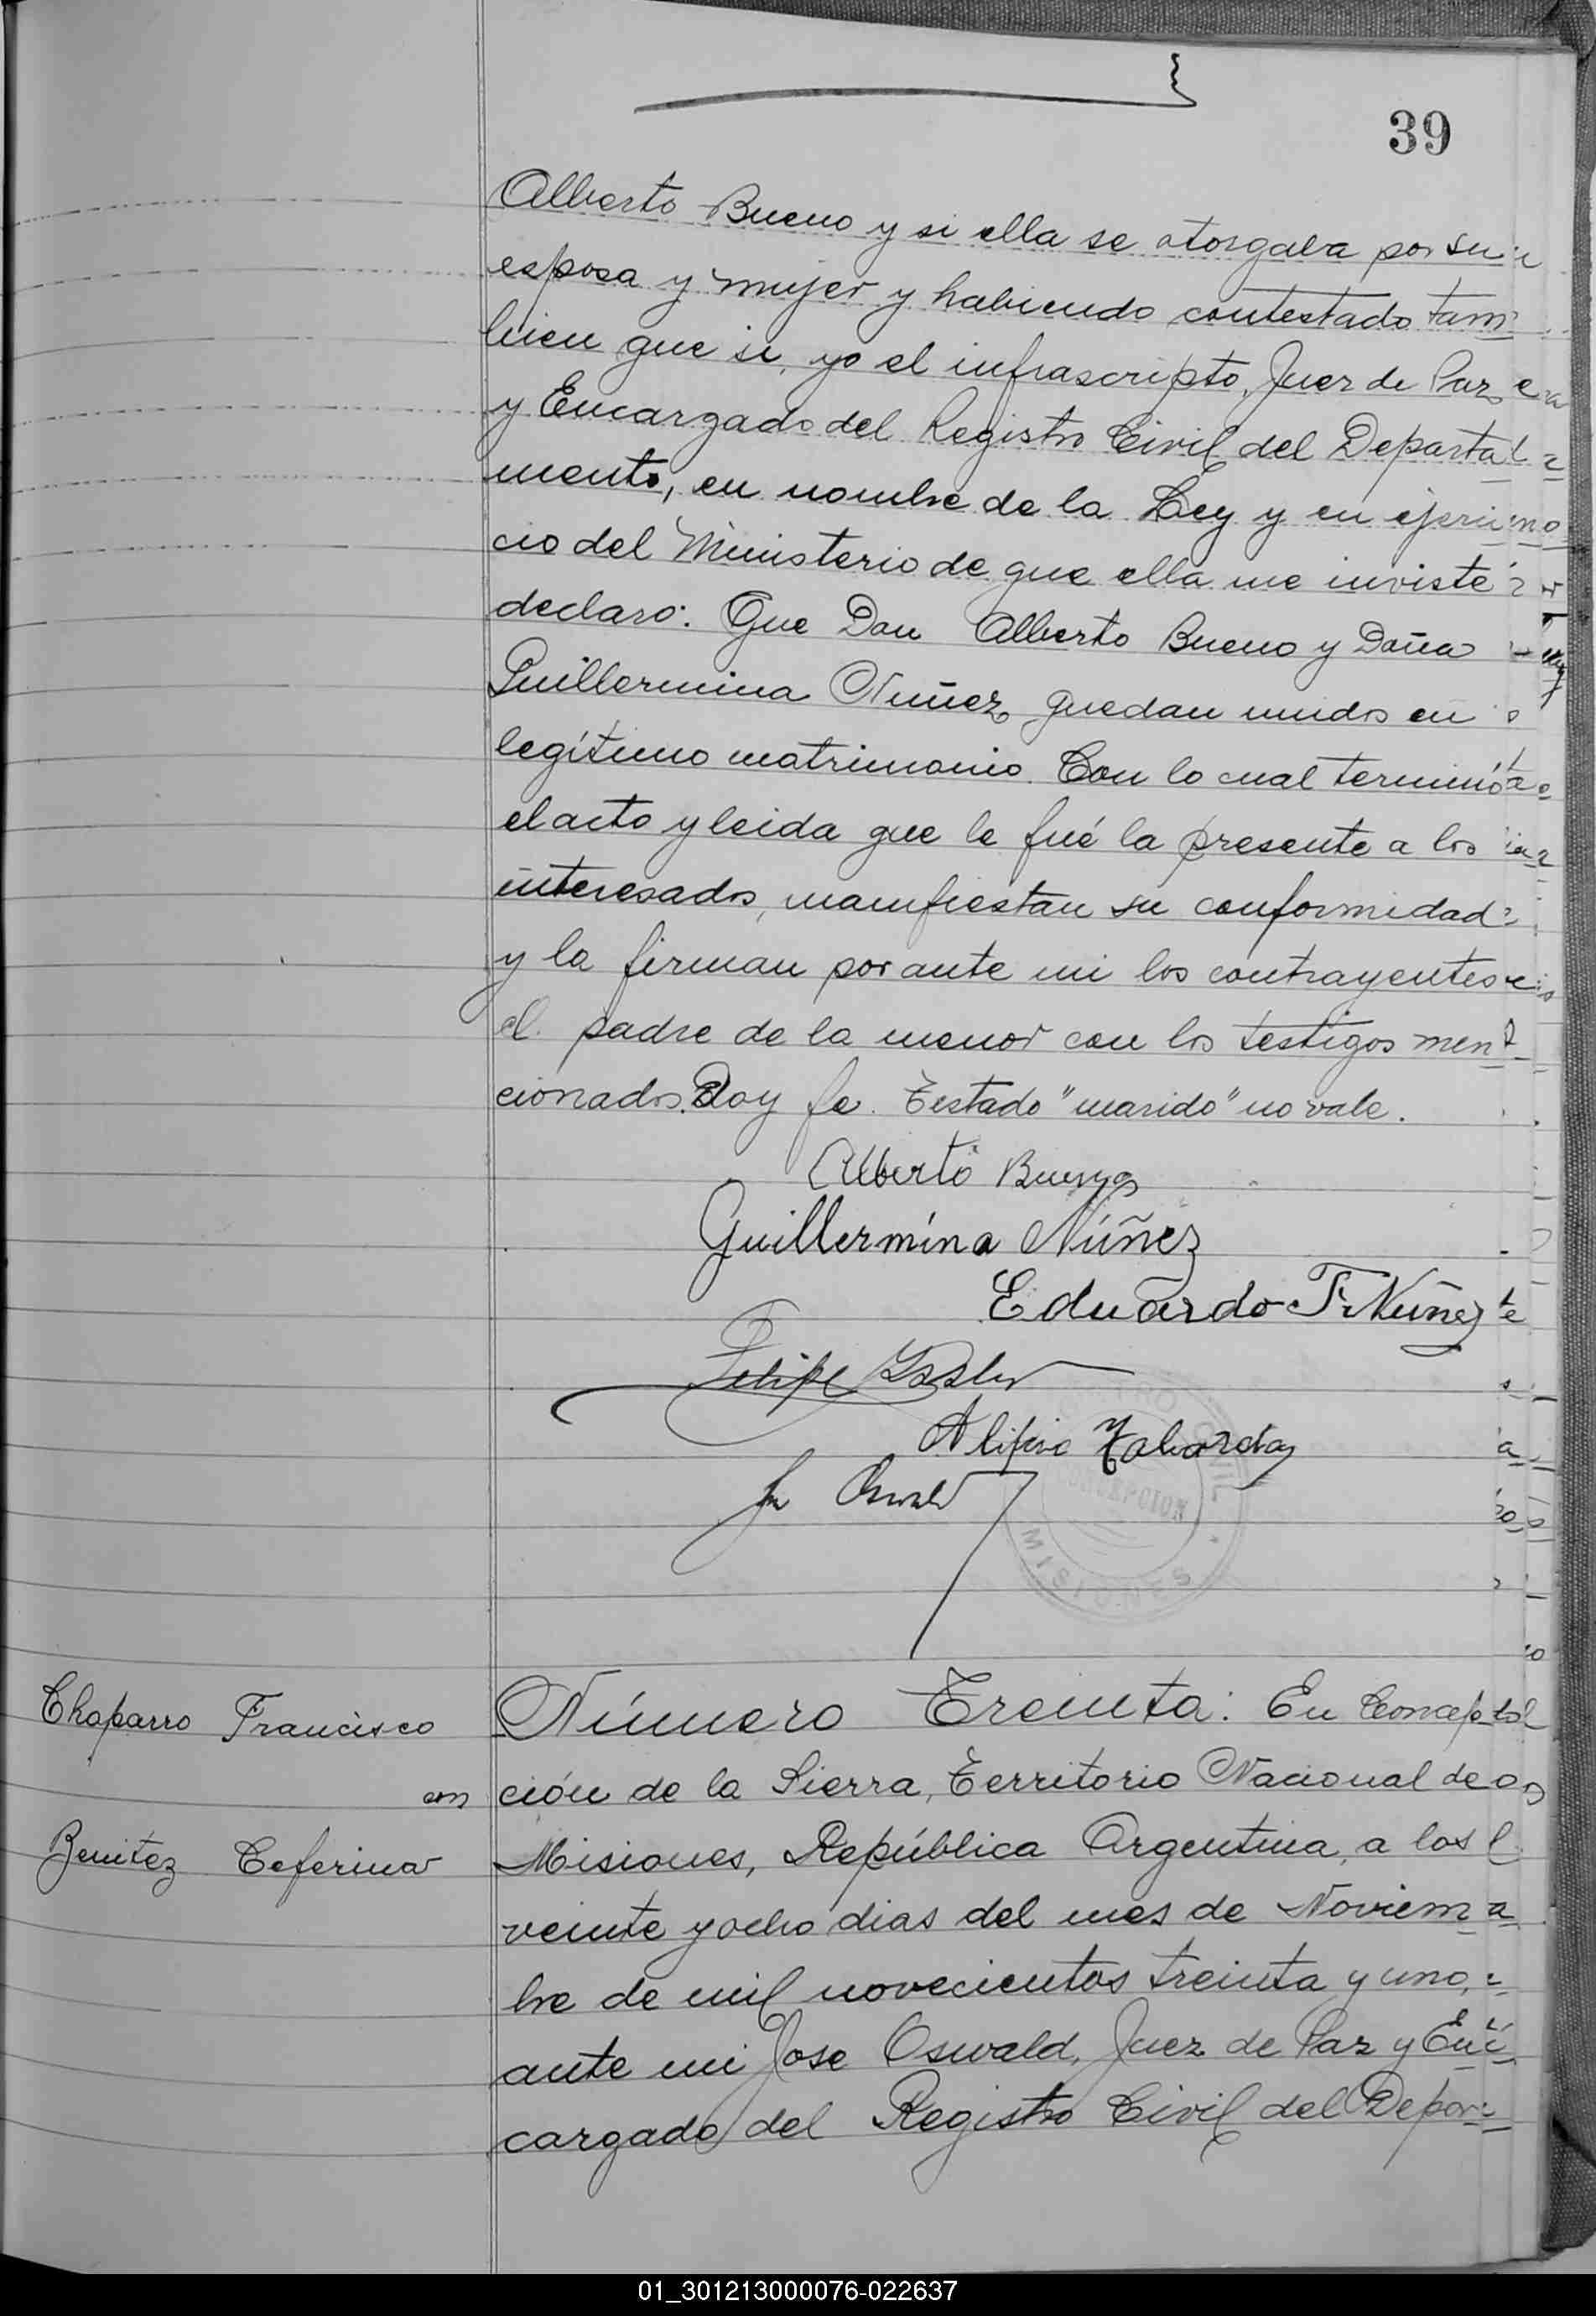 39
Alberto Bueno y si ella se otorgaba por su
esposa y mujer y habiendo contestado tam
bien que si, yo el infrascripto, Juez de Paz
y Encargado del Registro Civil del Departa
mento, en nombre de la Ley y en ejerci
cio del Ministerio de que ella me inviste
declaro: Que Don Alberto Bueno y Doña
Guillermina Nuñez quedan unidos en
legítimo matrimonio. Con lo cual terminó
el acto y leida que le fué la presente a los
interesados, manifiestan su conformidad
y la firman por ante mi los contrayentes
el padre de la menor con los testigos men
cionados. Doy fe. Testado "marido" no vale.
Alberto Bueno
Guillermina Núñez
Eduardo F. Nuñez
Felipe
Alipio Tabarda
Oswald
REGISTRO CIVIL
CONCEPCION
MISIONES
Chaparro Francisco
con
Benitez Ceferina
Número Treinta: En Concep
ción de la Sierra, Territorio Nacional de
Misiones, República Argentina, a los
veinte y ocho dias del mes de Noviem
bre de mil novecientos treinta y uno,
ante mi Jose Oswald, Juez de Paz y En
cargado del Registro Civil del Depar
01_301213000076-022637